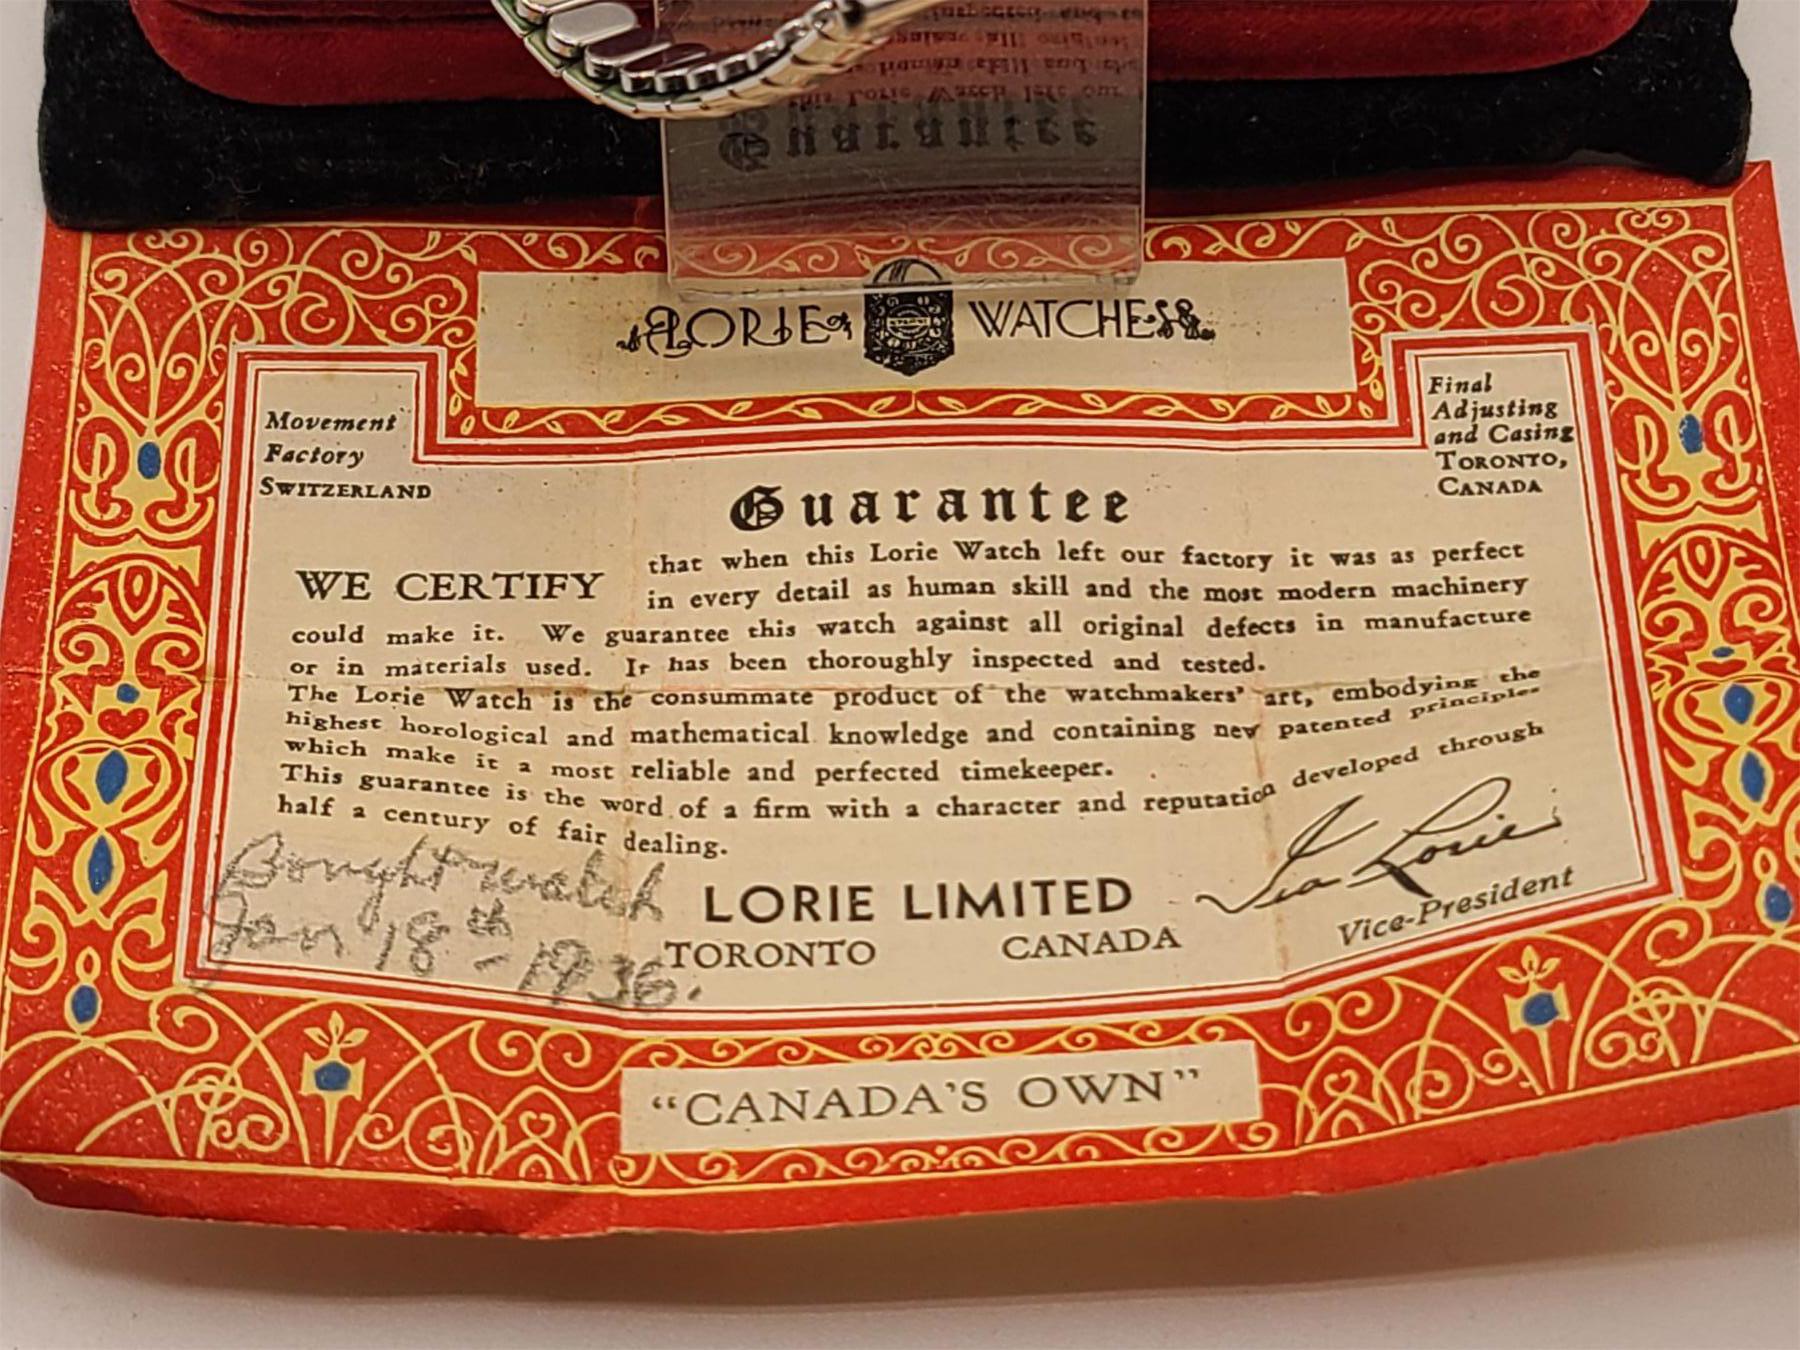 LORIE WATCHES
Movement
Factory
SWITZERLAND
Final
Adjusting
and Casing
TORONTO,
CANADA
Guarantee
WE CERTIFY
that when this Lorie Watch left our factory it was as perfect
in every detail as human skill and the most modern machinery
could make it. We guarantee this watch against all original defects in manufacture
or in materials used. It has been thoroughly inspected and tested.
The Lorie Watch is the consummate product of the watchmakers' art, embodying the
highest horological and mathematical knowledge and containing new patented principles
which make it a most reliable and perfected timekeeper.
This guarantee is the word of a firm with a character and reputation developed through
half a century of fair dealing.
Bought watch
Jan 18th - 1936.
LORIE LIMITED
TORONTO CANADA
Lorie
Vice-President
"CANADA'S OWN"